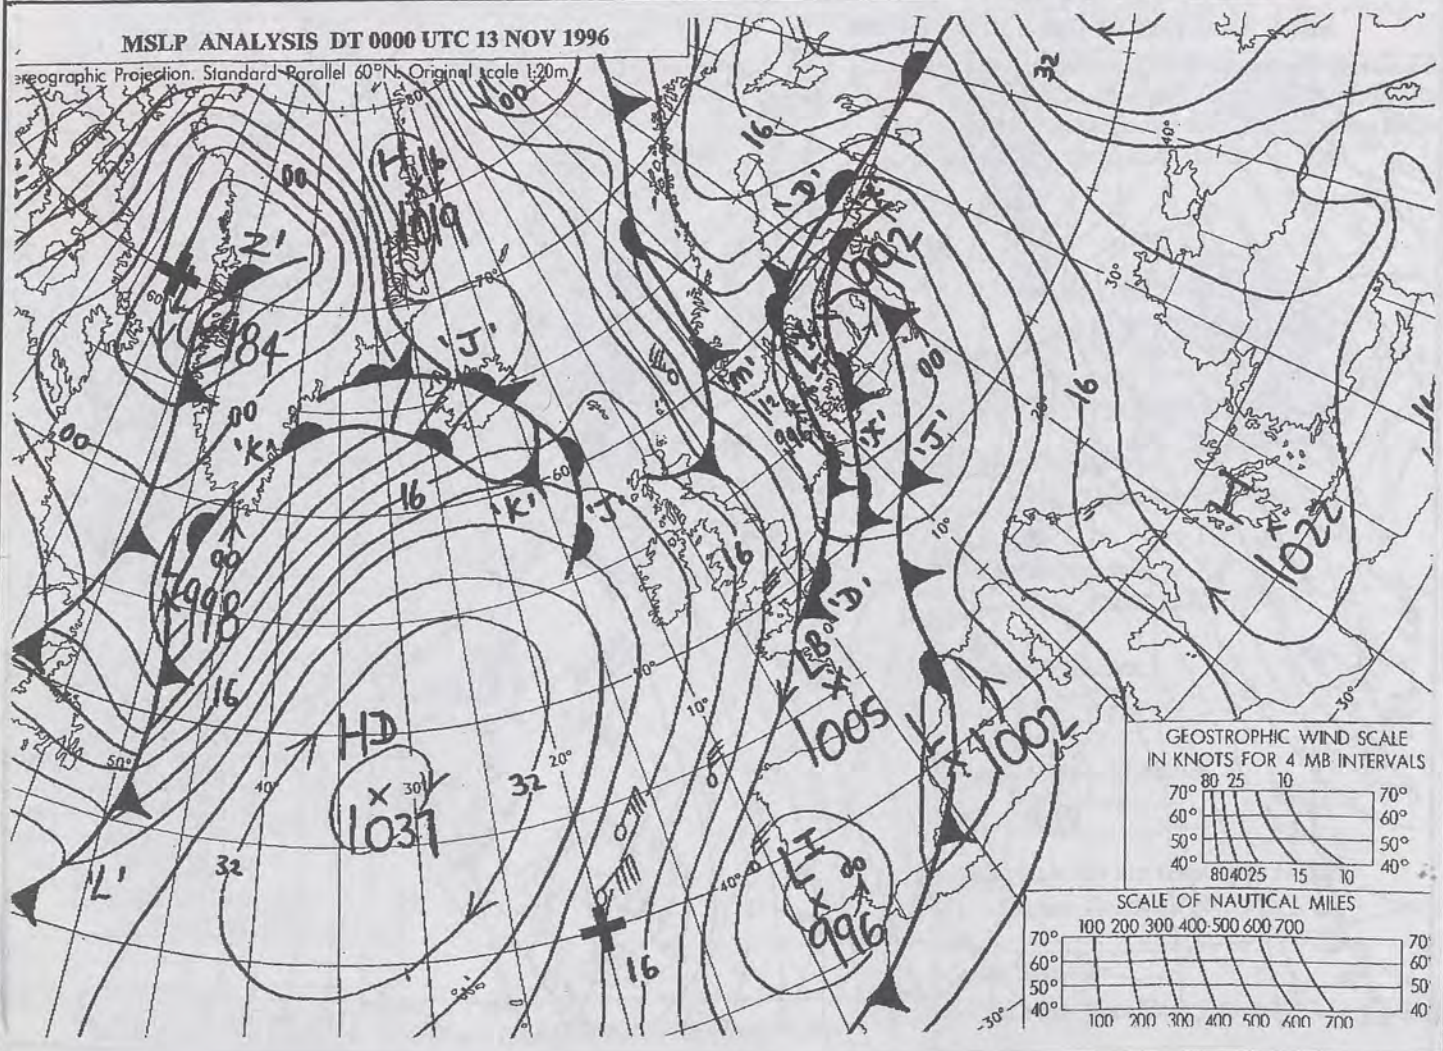 MSLP ANALYSIS DT 0000 UTC 13 NOV 1996
ereographic Projection. Standard Parallel 60°N. Original scale 1:20m
80°
32
40°
16
H 16
1019
00
00
'D'
992
Z'
30°
70°
60°
L
984
'J'
00
16
'M'
00
00
'K'
'K'
'J'
16
60°
'K'
'J'
16
10°
1022
00
L
998
'D'
LB
1005
16
50°
10°
HD
L
1002
30°
50°
40°
30°
1037
32
20°
32
'L'
LI
00
40°
996
16
30°
GEOSTROPHIC WIND SCALE
IN KNOTS FOR 4 MB INTERVALS
80 25 10
70° 70°
60° 60°
50° 50°
40° 40°
804025 15 10
SCALE OF NAUTICAL MILES
100 200 300 400 500 600 700
70° 70°
60° 60°
50° 50
40° 40°
100 200 300 400 500 600 700